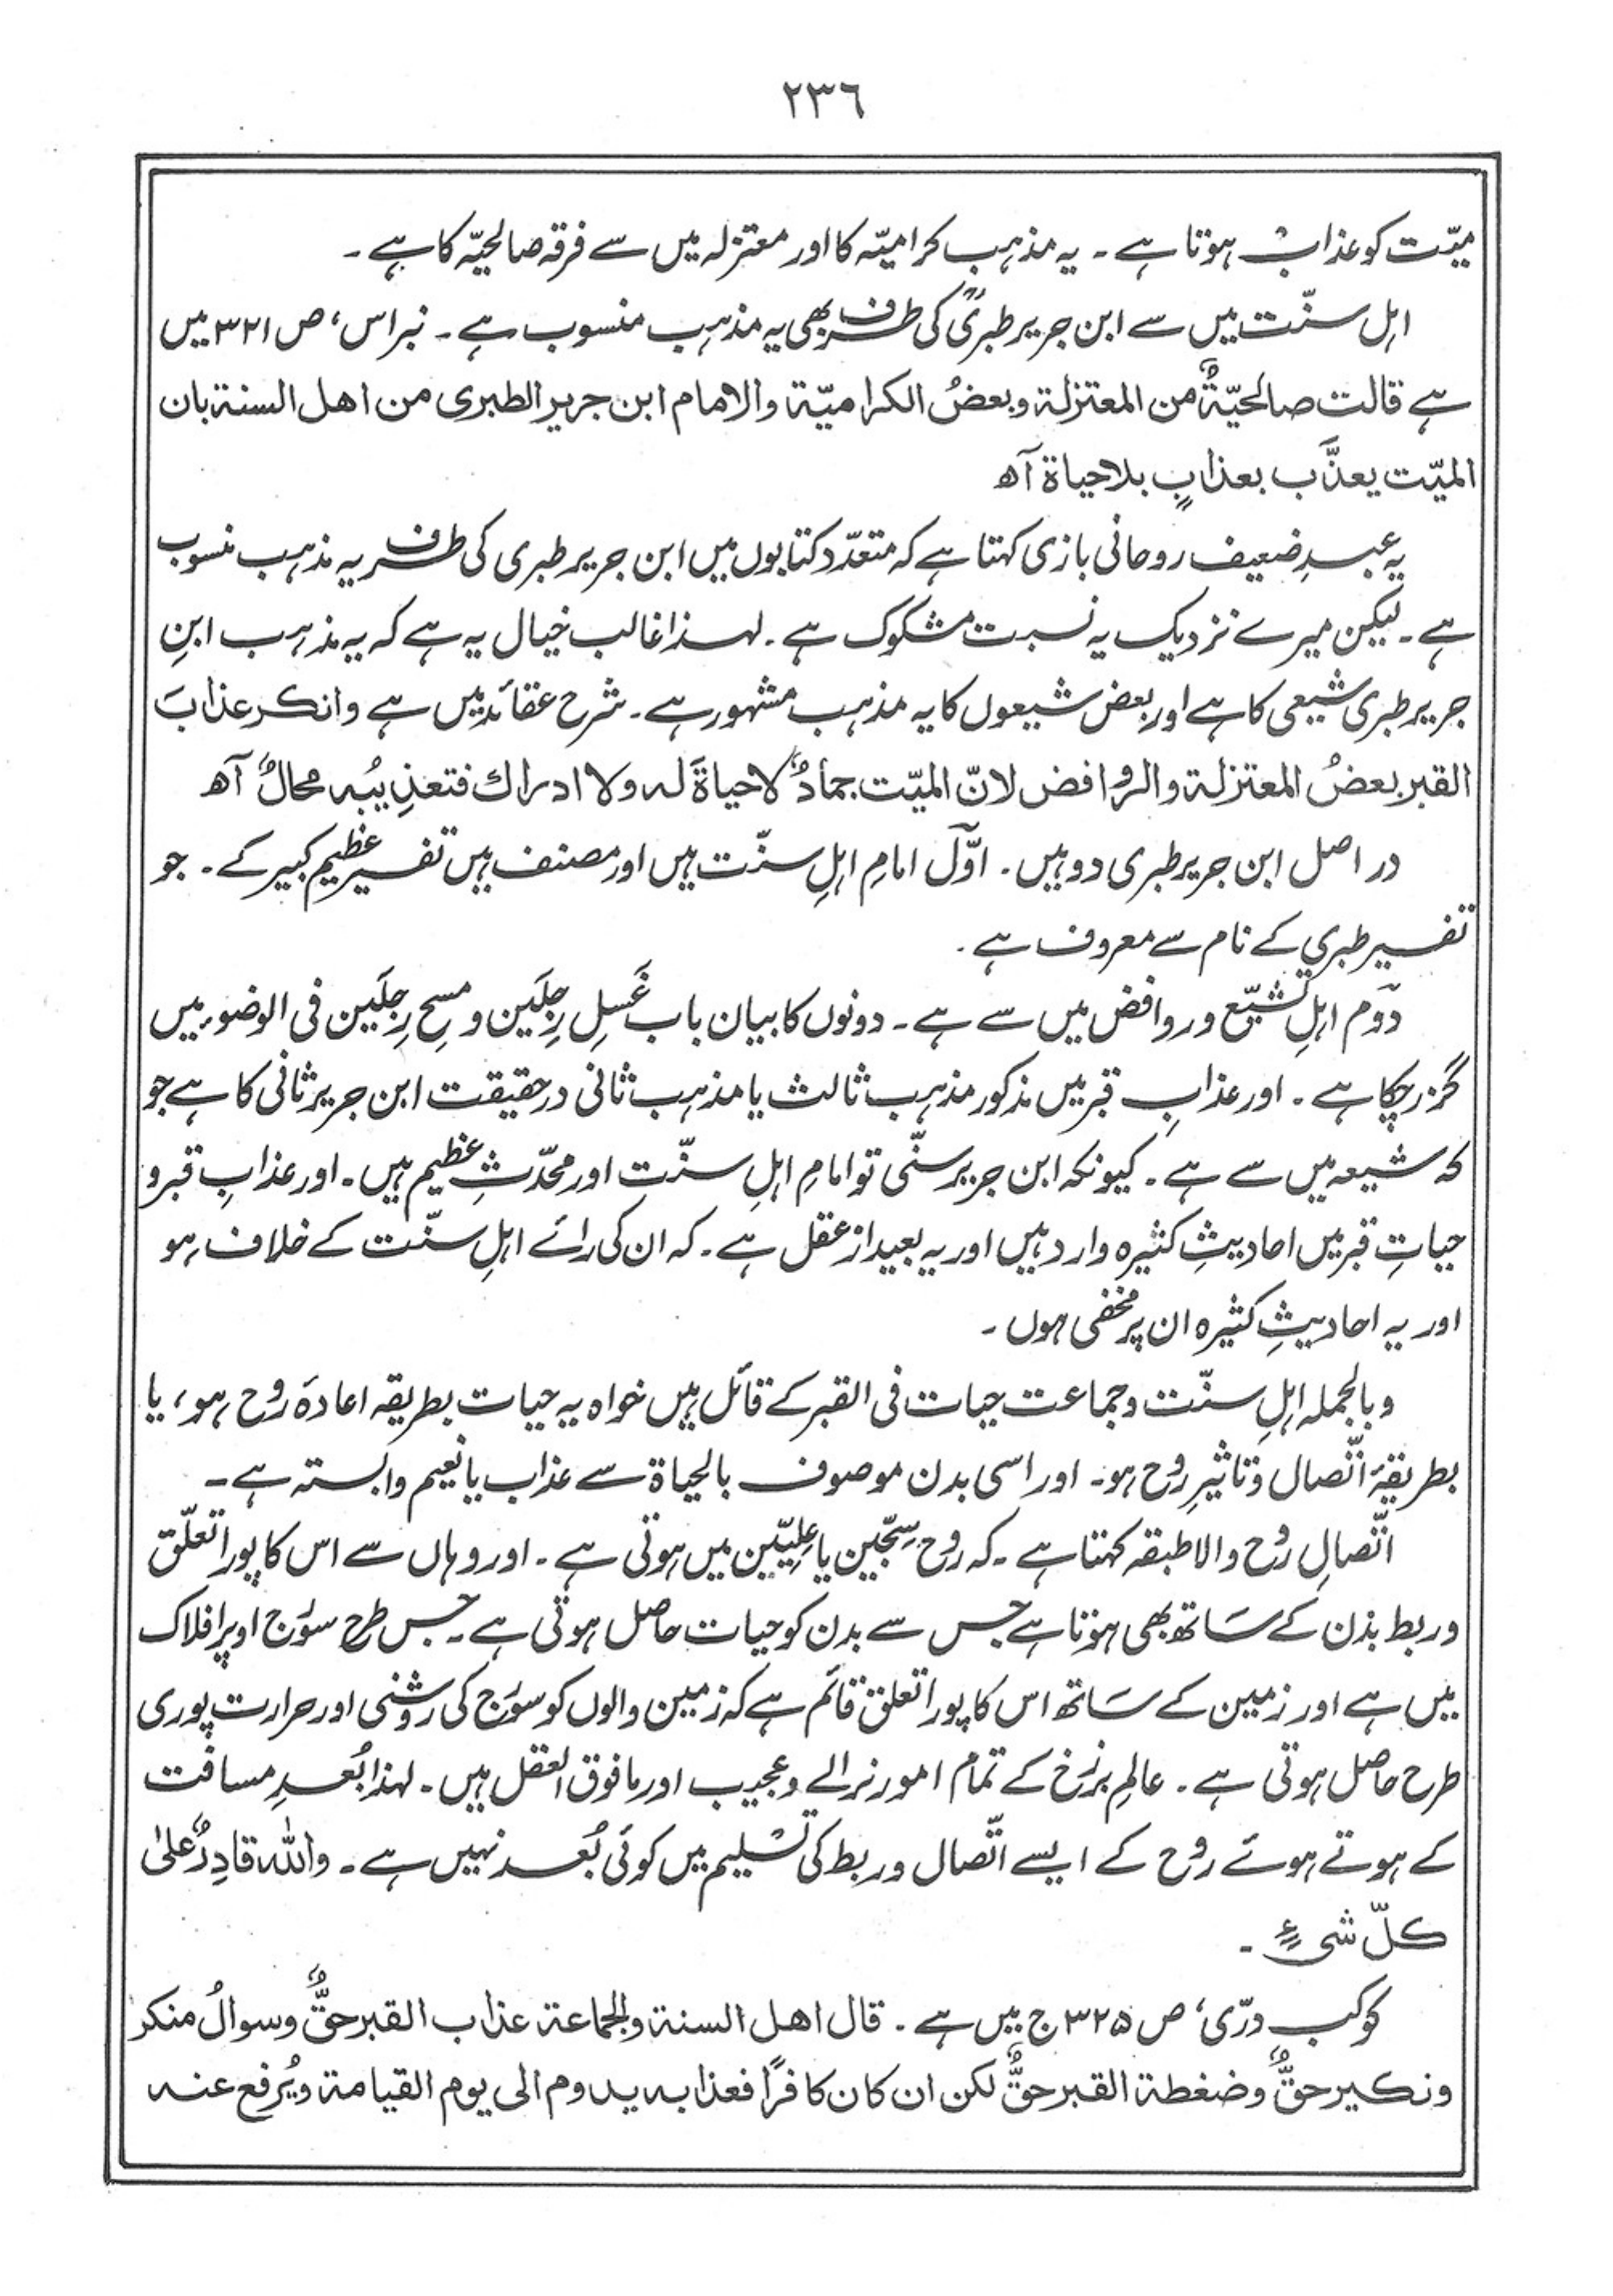 ٢٣٦
میّت کو عذاب ہوتا ہے ۔ یہ مذہب کرامیّہ کا اور معتزلہ میں سے فرقہ صالحیّہ کا ہے ۔
اہل سنّت میں سے ابن جریر طبریؒ کی طرف بھی یہ مذہب منسوب ہے ۔ نبراس، ص ۳۲۱ میں
ہے قالت صالحیّۃٌ من المعتزلۃ وبعضُ الکرامیّۃ والامام ابن جریر الطبری من اھل السنۃ بان
المیّت یعذَّب بعذابٍ بلا حیاۃ آھ
یہ عبدِ ضعیف روحانی بازی کہتا ہے کہ متعدّد کتابوں میں ابن جریر طبری کی طرف یہ مذہب منسوب
ہے ۔ لیکن میرے نزدیک یہ نسبت مشکوک ہے ۔ لہذا غالب خیال یہ ہے کہ یہ مذہب ابنِ
جریر طبری شیعی کا ہے اور بعض شیعوں کا یہ مذہب مشہور ہے ۔ شرح عقائد میں ہے وانکر عذابَ
القبر بعضُ المعتزلۃ والروافض لانّ المیّت جمادٌ لا حیاۃَ لہ ولا ادراك فتعذیبُہ محالٌ آھ
در اصل ابن جریر طبری دو ہیں ۔ اوّل امامِ اہلِ سنّت ہیں اور مصنف ہیں تفسیر عظیم کبیر کے ۔ جو
تفسیر طبری کے نام سے معروف ہے ۔
دوّم اہلِ تشیّع و روافض میں سے ہے ۔ دونوں کا بیان باب غَسلِ رِجلَین و مسحِ رِجلَین فی الوضوء میں
گزر چکا ہے ۔ اور عذابِ قبر میں مذکور مذہب ثالث یا مذہب ثانی درحقیقت ابن جریر ثانی کا ہے جو
کہ شیعہ میں سے ہے ۔ کیونکہ ابن جریر سنّی تو امامِ اہلِ سنّت اور محدّثِ عظیم ہیں ۔ اور عذابِ قبر و
حیاتِ قبر میں احادیثِ کثیرہ وارد ہیں اور یہ بعید از عقل ہے ۔ کہ ان کی رائے اہلِ سنّت کے خلاف ہو
اور یہ احادیثِ کثیرہ ان پر مخفی ہوں ۔
وبالجملہ اہلِ سنّت وجماعت حیات فی القبر کے قائل ہیں خواہ یہ حیات بطریقہ اعادۂ روح ہو، یا
بطریقۂ اتّصال و تاثیرِ روح ہو ۔ اور اسی بدن موصوف بالحیاۃ سے عذاب یا نعیم وابستہ ہے ۔
اتّصالِ رُوح والا طبقہ کہتا ہے ۔ کہ روح سِجّین یا عِلیّین میں ہوتی ہے ۔ اور وہاں سے اس کا پورا تعلّق
وربط بدن کے ساتھ بھی ہوتا ہے جس سے بدن کو حیات حاصل ہوتی ہے ۔ جس طرح سورج اوپر افلاک
میں ہے اور زمین کے ساتھ اس کا پورا تعلق قائم ہے کہ زمین والوں کو سورج کی روشنی اور حرارت پوری
طرح حاصل ہوتی ہے ۔ عالمِ برزخ کے تمام امور نرالے وعجیب اور مافوق العقل ہیں ۔ لہذا بُعدِ مسافت
کے ہوتے ہوئے رُوح کے ایسے اتّصال وربط کی تسلیم میں کوئی بُعد نہیں ہے ۔ واللّٰہ قادِرٌ علیٰ
کلّ شیءٍ ۔
کوکب درّی، ص ۳۲۵ ج میں ہے ۔ قال اھل السنۃ والجماعۃ عذاب القبر حقٌّ وسوالُ منکر
ونکیر حقٌّ وضغطۃ القبر حقٌّ لکن ان کان کافرًا فعذابہ یدوم الی یوم القیامۃ ویُرفع عنہ